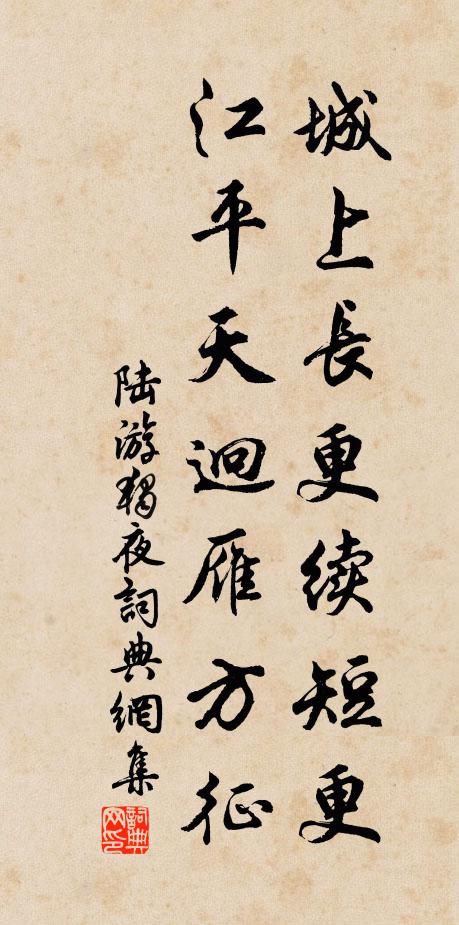 城上長更續短更
江平天迥雁方征
陸游獨夜詞典網集
詞典网印